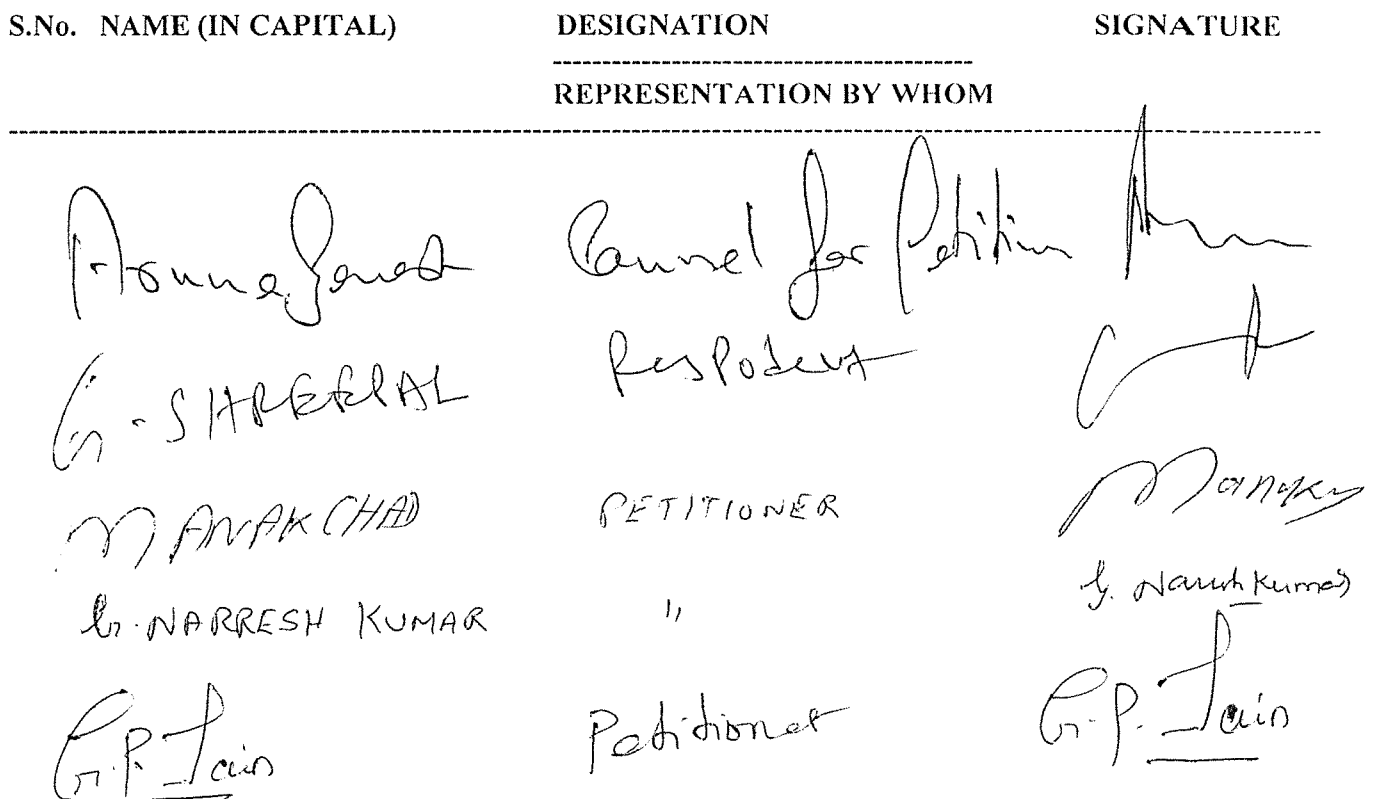 S.No. NAME (IN CAPITAL) DESIGNATION SIGNATURE
REPRESENTATION BY WHOM
Counsel for Petition
G. SHREEPAL Respodent
MANAKCHAD PETITIONER
G. NARRESH KUMAR " G. Naresh Kumar
G.P. Jain Petitioner G.P. Jain